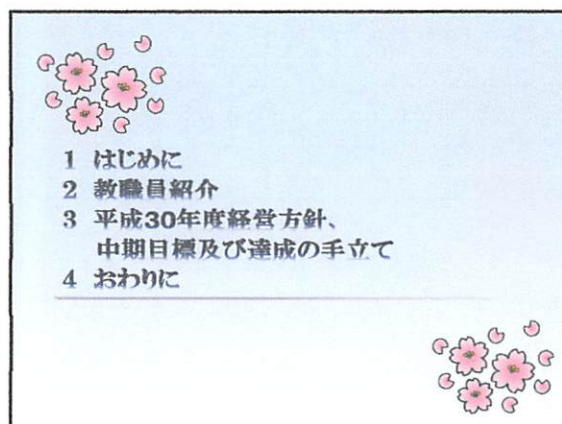 1 はじめに
2 教職員紹介
3 平成30年度経営方針、
中期目標及び達成の手立て
4 おわりに